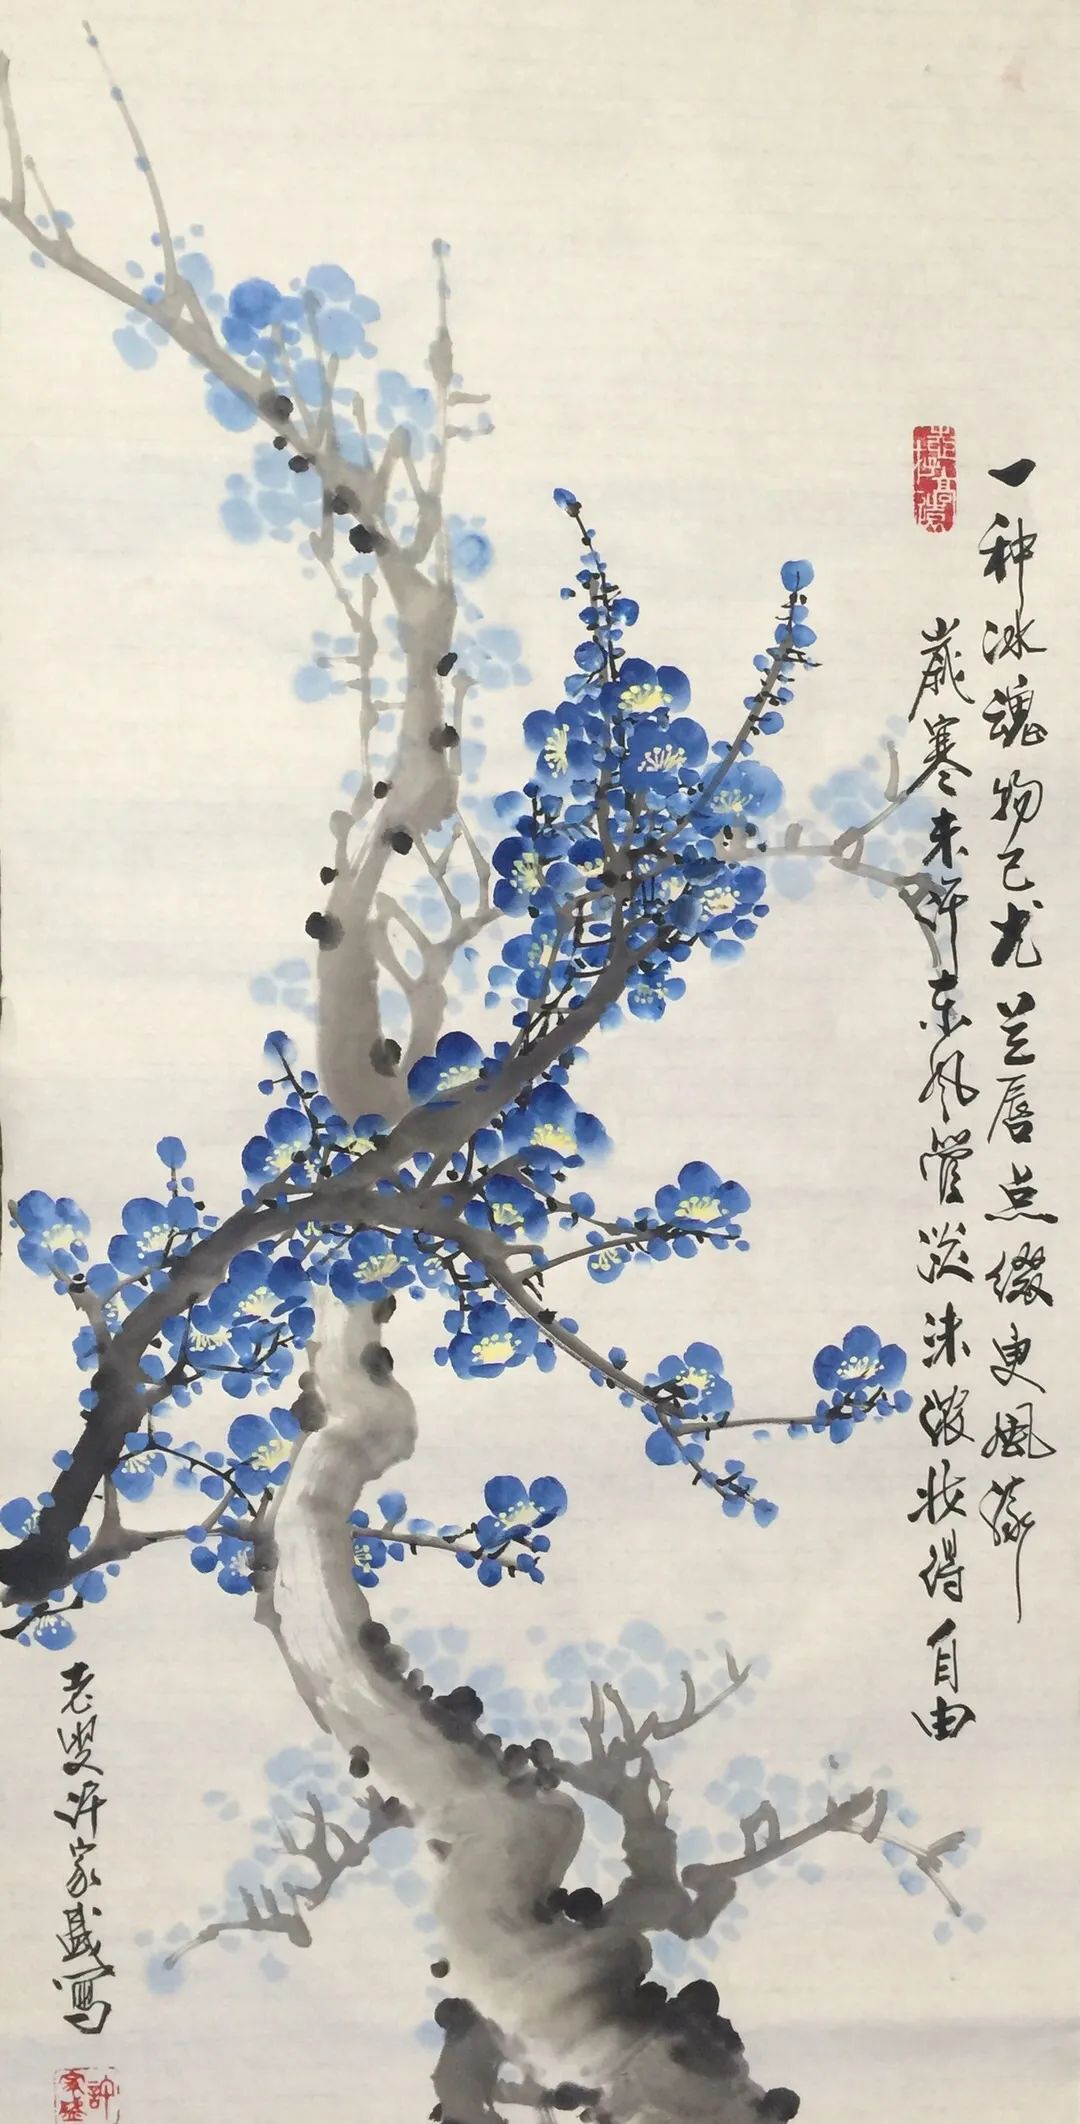 一种冰魂物已尤 兰唇点缀更風流
岁寒未许东风管 淡沫浓妆得自由
老叟许家盛写
许家盛